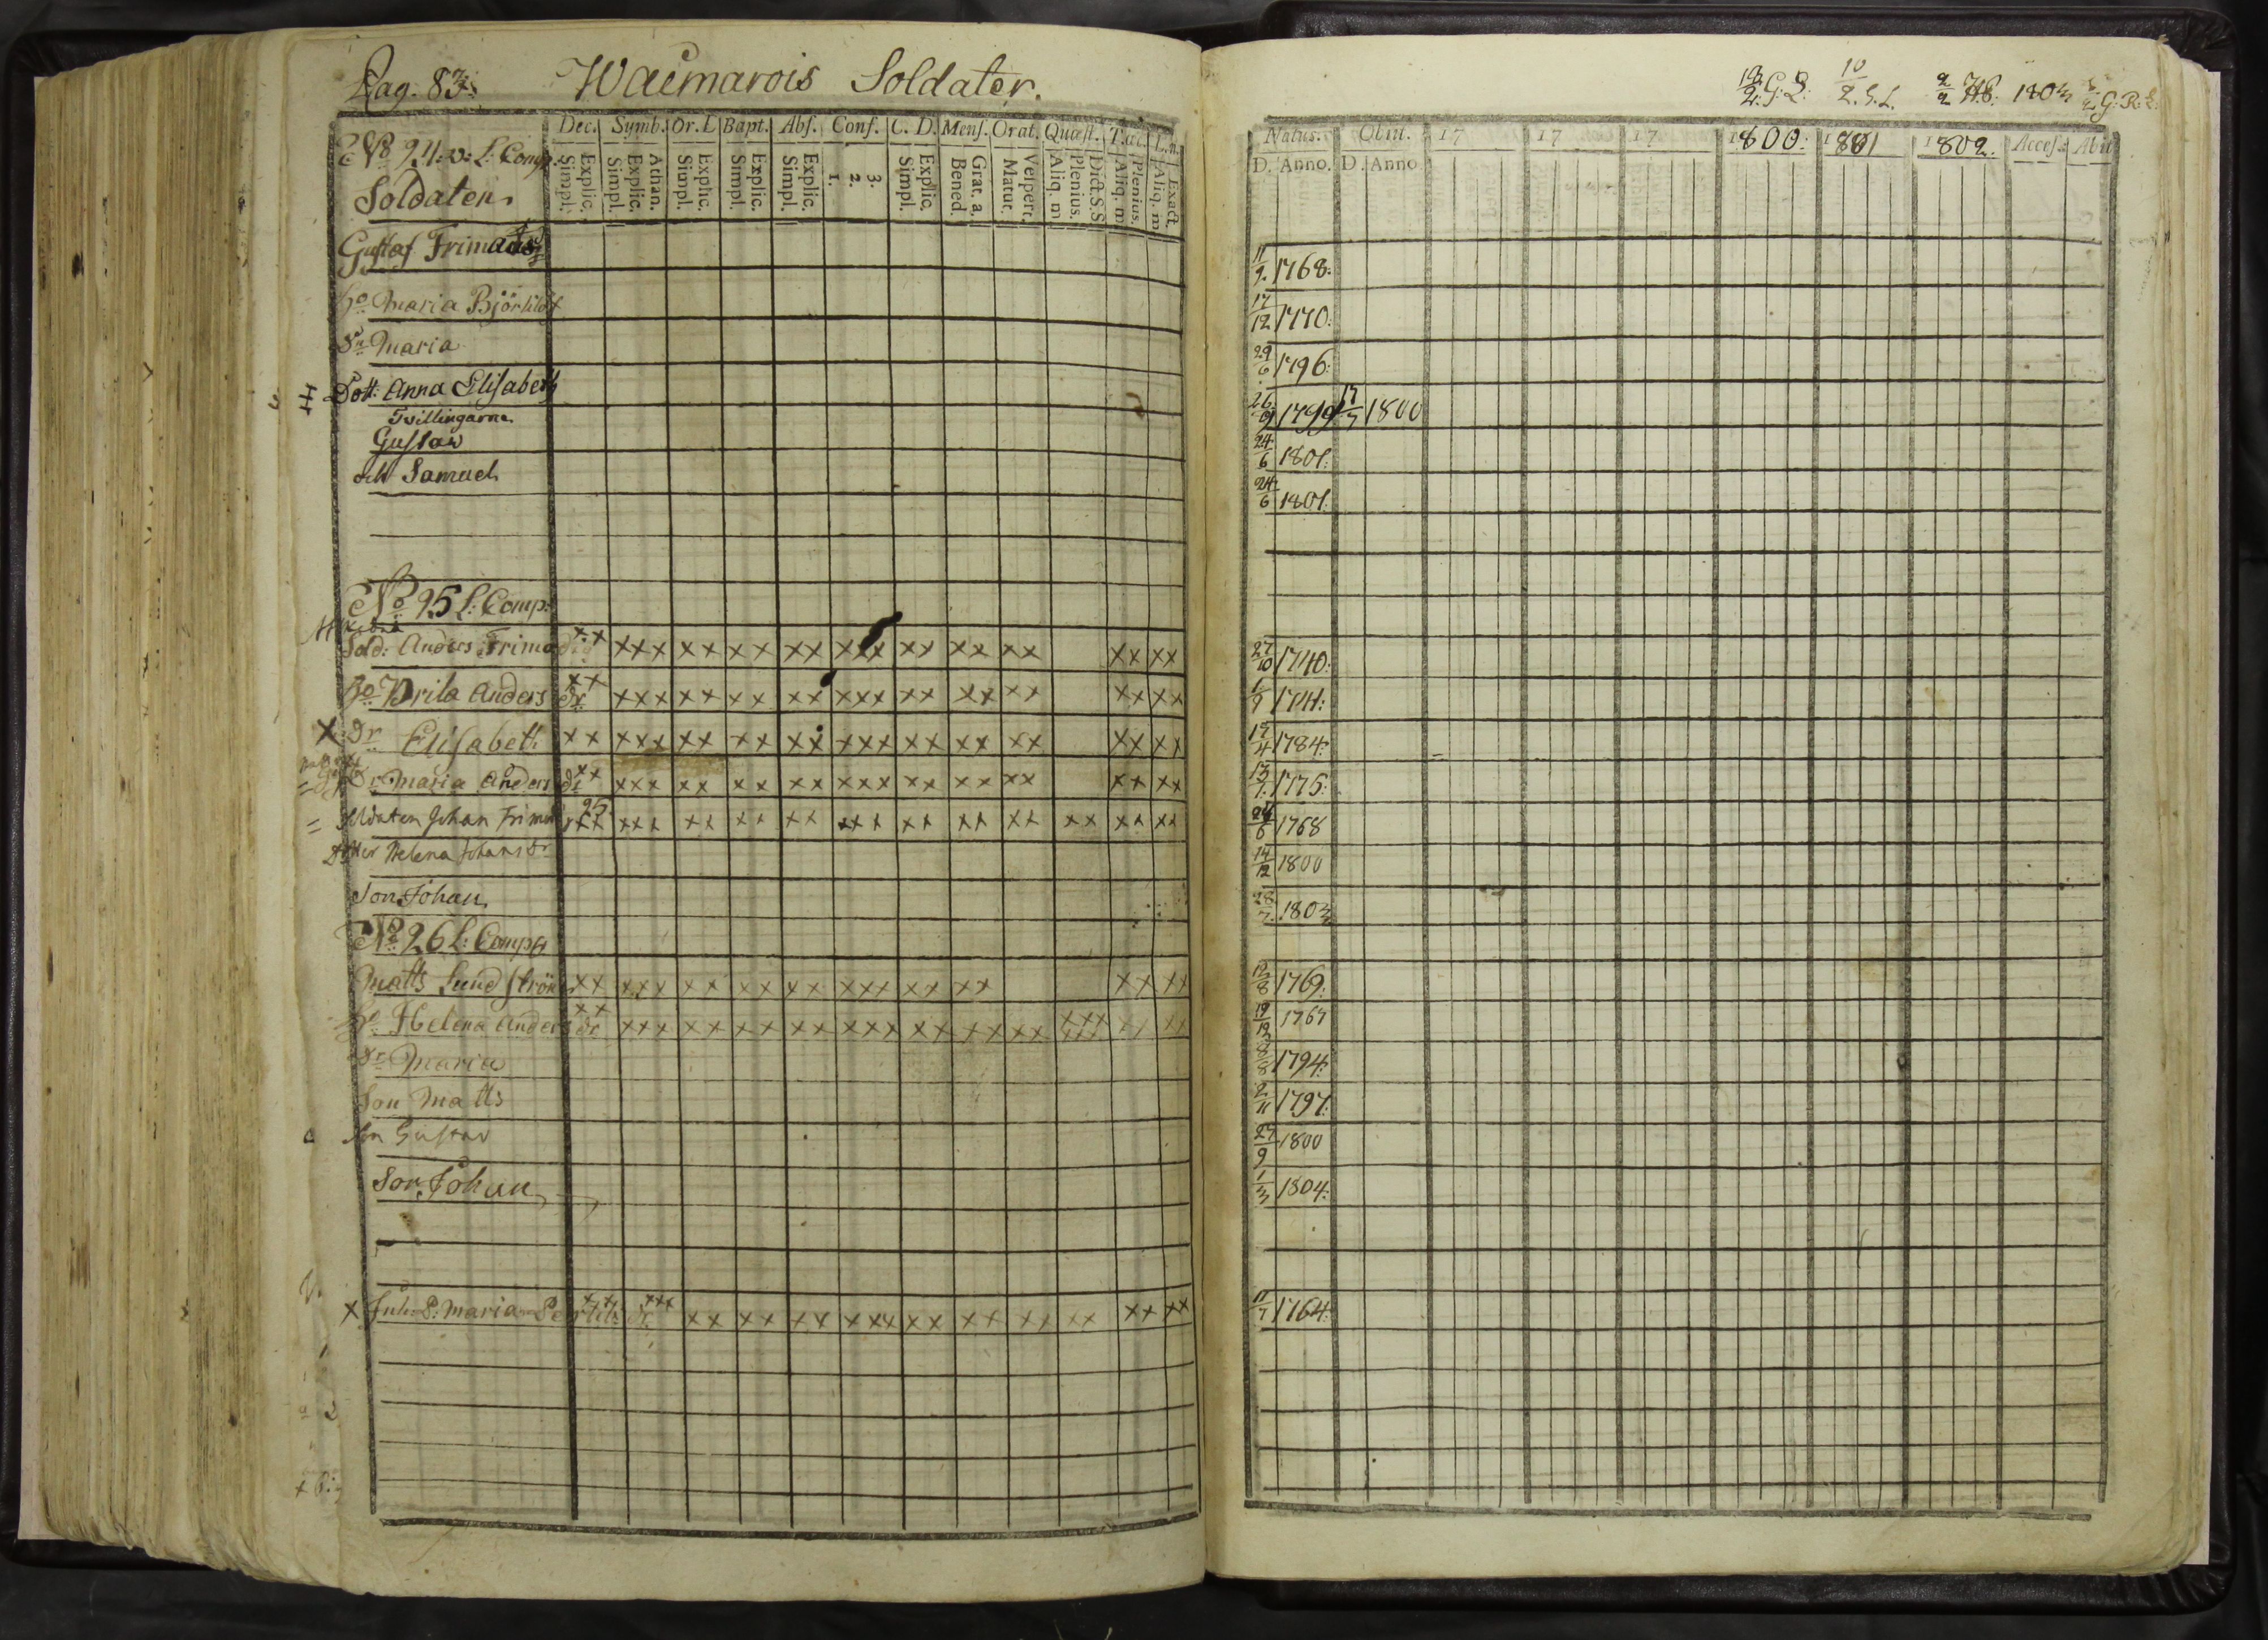 Pag. 83. Waemarois Soldater.
Dec. Symb. Or. L Bapt. Abs. Conf. C. D. Mens. Orat. Quæst. T.æc. L.n.
Simpl. Explic. Simpl. Explic. Athan. Simpl. Explic. Simpl. Explic. Simpl. Explic. 1. 2. 3. Simpl. Explic. Bened. Grat. a. Matut. Vespert. Aliq. m Plenius. Dict.S.S Aliq. m Plenius. Aliq. m Exact.
No 94: L: Comp:
Soldaten
Gustaf Frimodig
Ho Maria
Dr Maria
Dott: Anna Elisabeth
Tvillingarne
Gustaw
och Samuel
No 95 L: Comp:
Sold: Anders Frimodig xx xxx xx xx xx xxx xx xx xx xx xx
Ho Brita Anders dr xx xxx xx xx xx xxx xx xx xx xx xx
x Dr Elisabeth xx xxx xx xx xx xxx xx xx xx xx xx
Maria Anders dr xx xxx xx xx xx xxx xx xx xx xx xx
= Soldaten Johan Frimod 95 xxx xxx xx xx xx xxx xx xx xx xx xx xx
Dotter Helena Johans dr
Son Johan
No 26 L: Comp
Matts Sundström xx xxx xx xx xx xxx xx xx xx xx
Ho Helena Anders dr xx xxx xx xx xx xxx xx xx xx xxx xxx xx xx
Dr Maria
Son Matts
Son Gustav
Son Johan
x Inh: P: Maria dr xx xxx xx xx xx xxx xx xx xx xx xx xx
10/2. G. L. 2/2 1803 G: R: L:
Natus. Obiit. 17 17 17 1800. 1801 1802. Access. Abiit
D. Anno. D. Anno
11/9. 1768:
17/12 1770:
29/6 1796:
26/9 1799 17/7 1800
24/6 1801:
24/6 1801:
27/10 1740:
1/9 1741:
17/4 1784:
13/7. 1775:
24/6 1768
14/12 1800
28/7. 1803
12/8 1769:
19/12 1767
8/8 1794:
2/11 1797:
27/9 1800
1/3 1804:
11/7 1764: